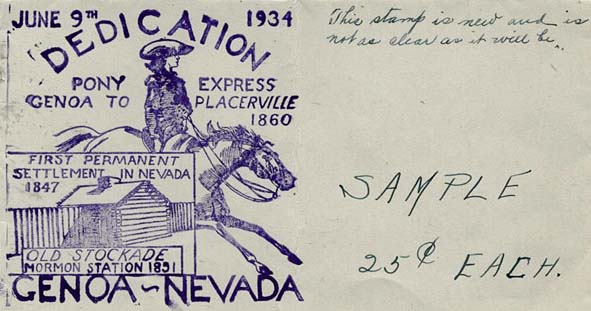 JUNE 9TH 1934
DEDICATION
PONY EXPRESS
GENOA TO PLACERVILLE
1860
FIRST PERMANENT
SETTLEMENT IN NEVADA
1847
OLD STOCKADE
MORMON STATION 1851
GENOA~NEVADA
This stamp is new and is
not as clear as it will be..
SAMPLE
25¢ EACH.